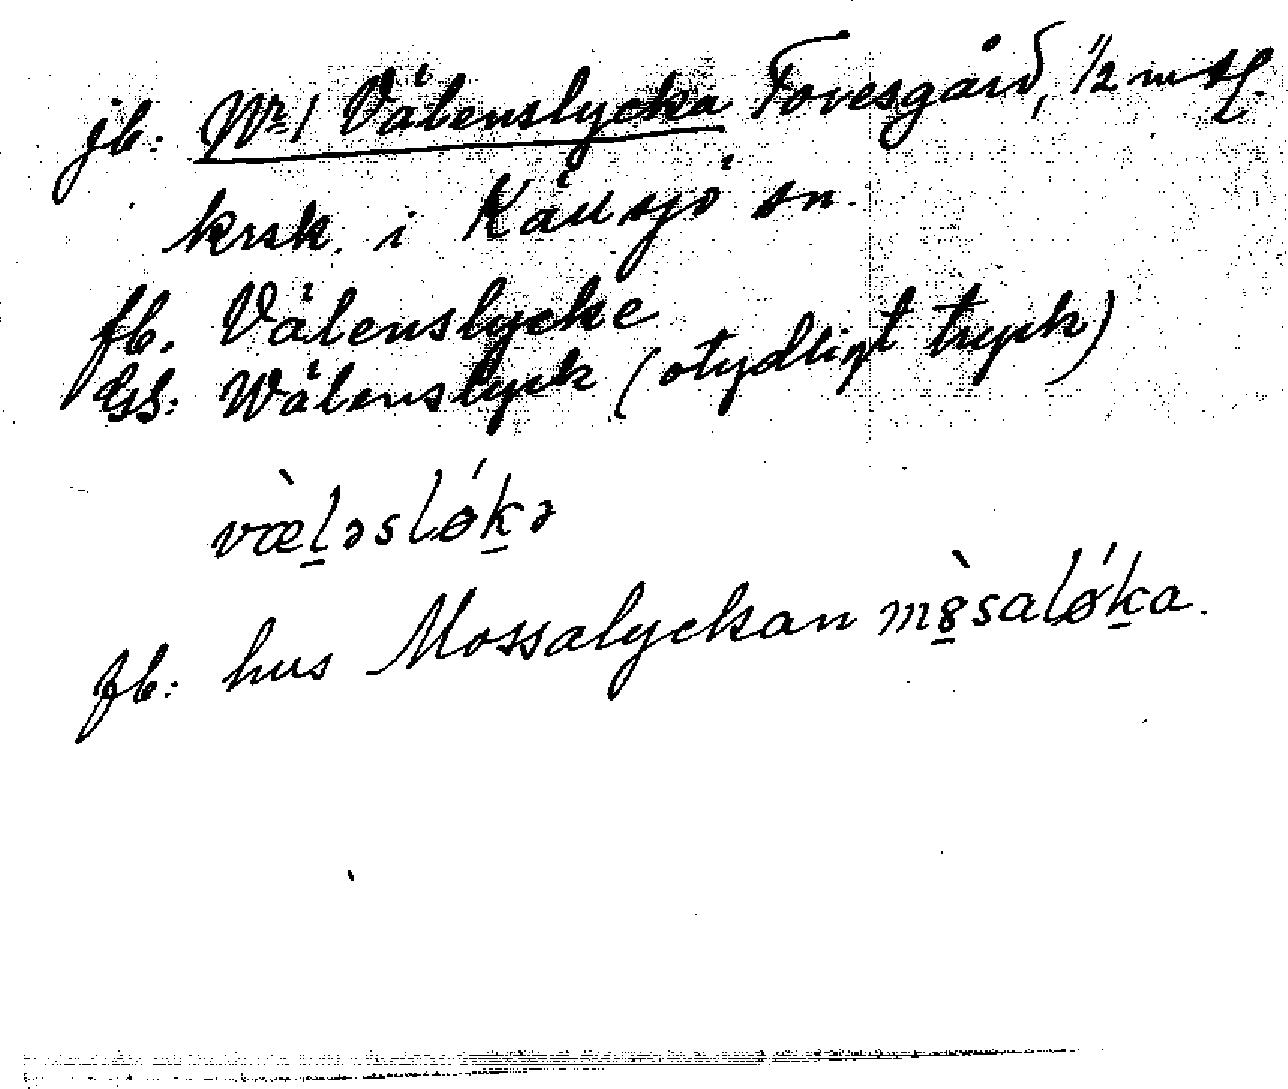 jb: Nr 1 Välenslycka Tovesgård, 1/2 mtl.
krsk. i Källsjö sn.
fb. Välenslycke
GS: Wälenslyck (otydligt tryck)
vœ̀l̠əsløḱ̠ə
fb: hus Mossalyckan m8̠̀saløḱ̠a.